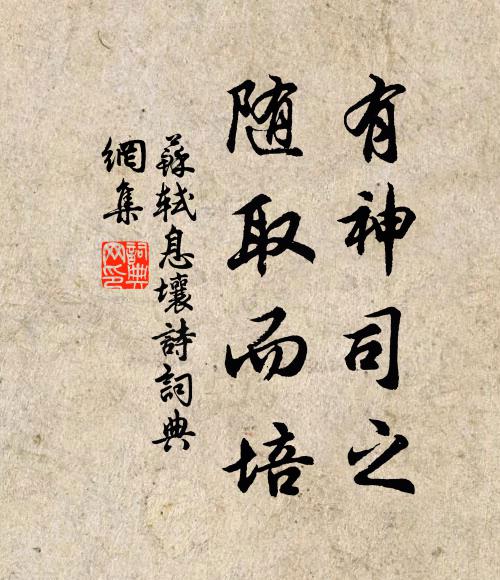 有神司之
随取而培
蘇軾息壤詩詞典
網集
詞典
网印